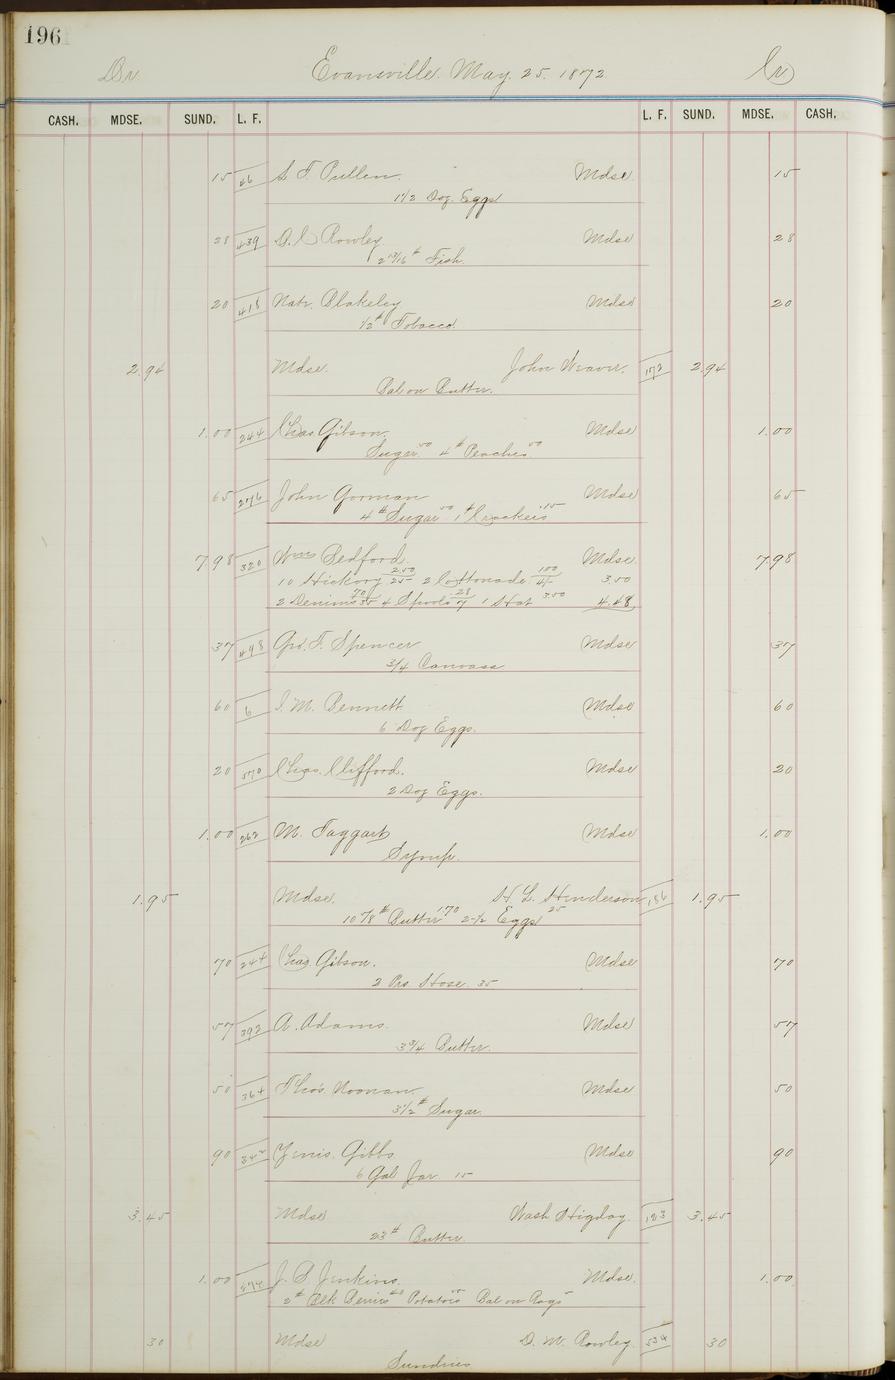 196
Dr Evansville May. 25. 1872 Cr
CASH. MDSE. SUND. L. F. L. F. SUND. MDSE. CASH.
15 26 S. T. Pullen. Mdse 15
1 1/2 Doz. Eggs
28 439 D. L Rowley Mdse 28
2 13/16 # Fish.
20 418 Natr. Blakeley Mdse 20
1/2 # Tobacco
2.94 Mdse. John Weaver. 173 2.94
Bal on Butter.
1.00 244 Chas. Gibson. Mdse 1.00
Sugar 50 4 # Peaches 50
65 276 John Gorman Mdse 65
4 # Sugar 50 1 # Crackers .15
7.98 320 Wm Bedford. Mdse. 7.98
10 Hickory 2.50/25 2 Cottonade 1.00/4/- 3.50
2 Denims 70/35 4 Spools .28/7 1 Hat 3.50 4.48
37 498 Geo. F. Spencer Mdse 37
3/4 Canvass
60 6 I. M. Bennett Mdse 60
6 Doz Eggs.
20 570 Chas. Clifford. Mdse 20
2 Doz Eggs.
1.00 262 M. Taggart Mdse 1.00
Syrup.
1.95 Mdse. H. L. Henderson 186 1.95
10 7/8 # Butter 1.70 2-1/2 Eggs 25
70 244 Chas. Gibson. Mdse 70
2 Prs Hose. 35
57 392 A. Adams. Mdse 57
3 3/4 Butter.
50 364 Thos. Noonan. Mdse 50
3 1/2 # Sugar.
90 342 Gibbs Mdse 90
6 Gal Jar. 15
3.45 Mdse Wash Higday. 123 3.45
23 # Butter.
1.00 474 J. B Jenkins. Mdse. 1.00
2 # Blk Berries 40 Potatoes 55 Bal on Rags 5
30 Mdse D. M. Rowley 534 30
Sundries